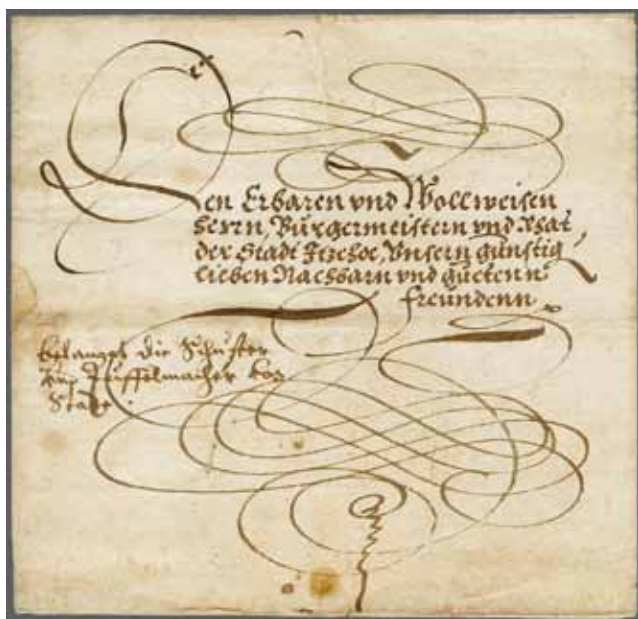 Den Erbaren vnd Wollweisen
Herrn, Bürgermeistern vnd Rhat
der Stadt Itzehoe, Vnsern günstig
lieben Nachbarn vnd guetenn
freundenn
belanget die Schuster
Tuffelmacher
Stade